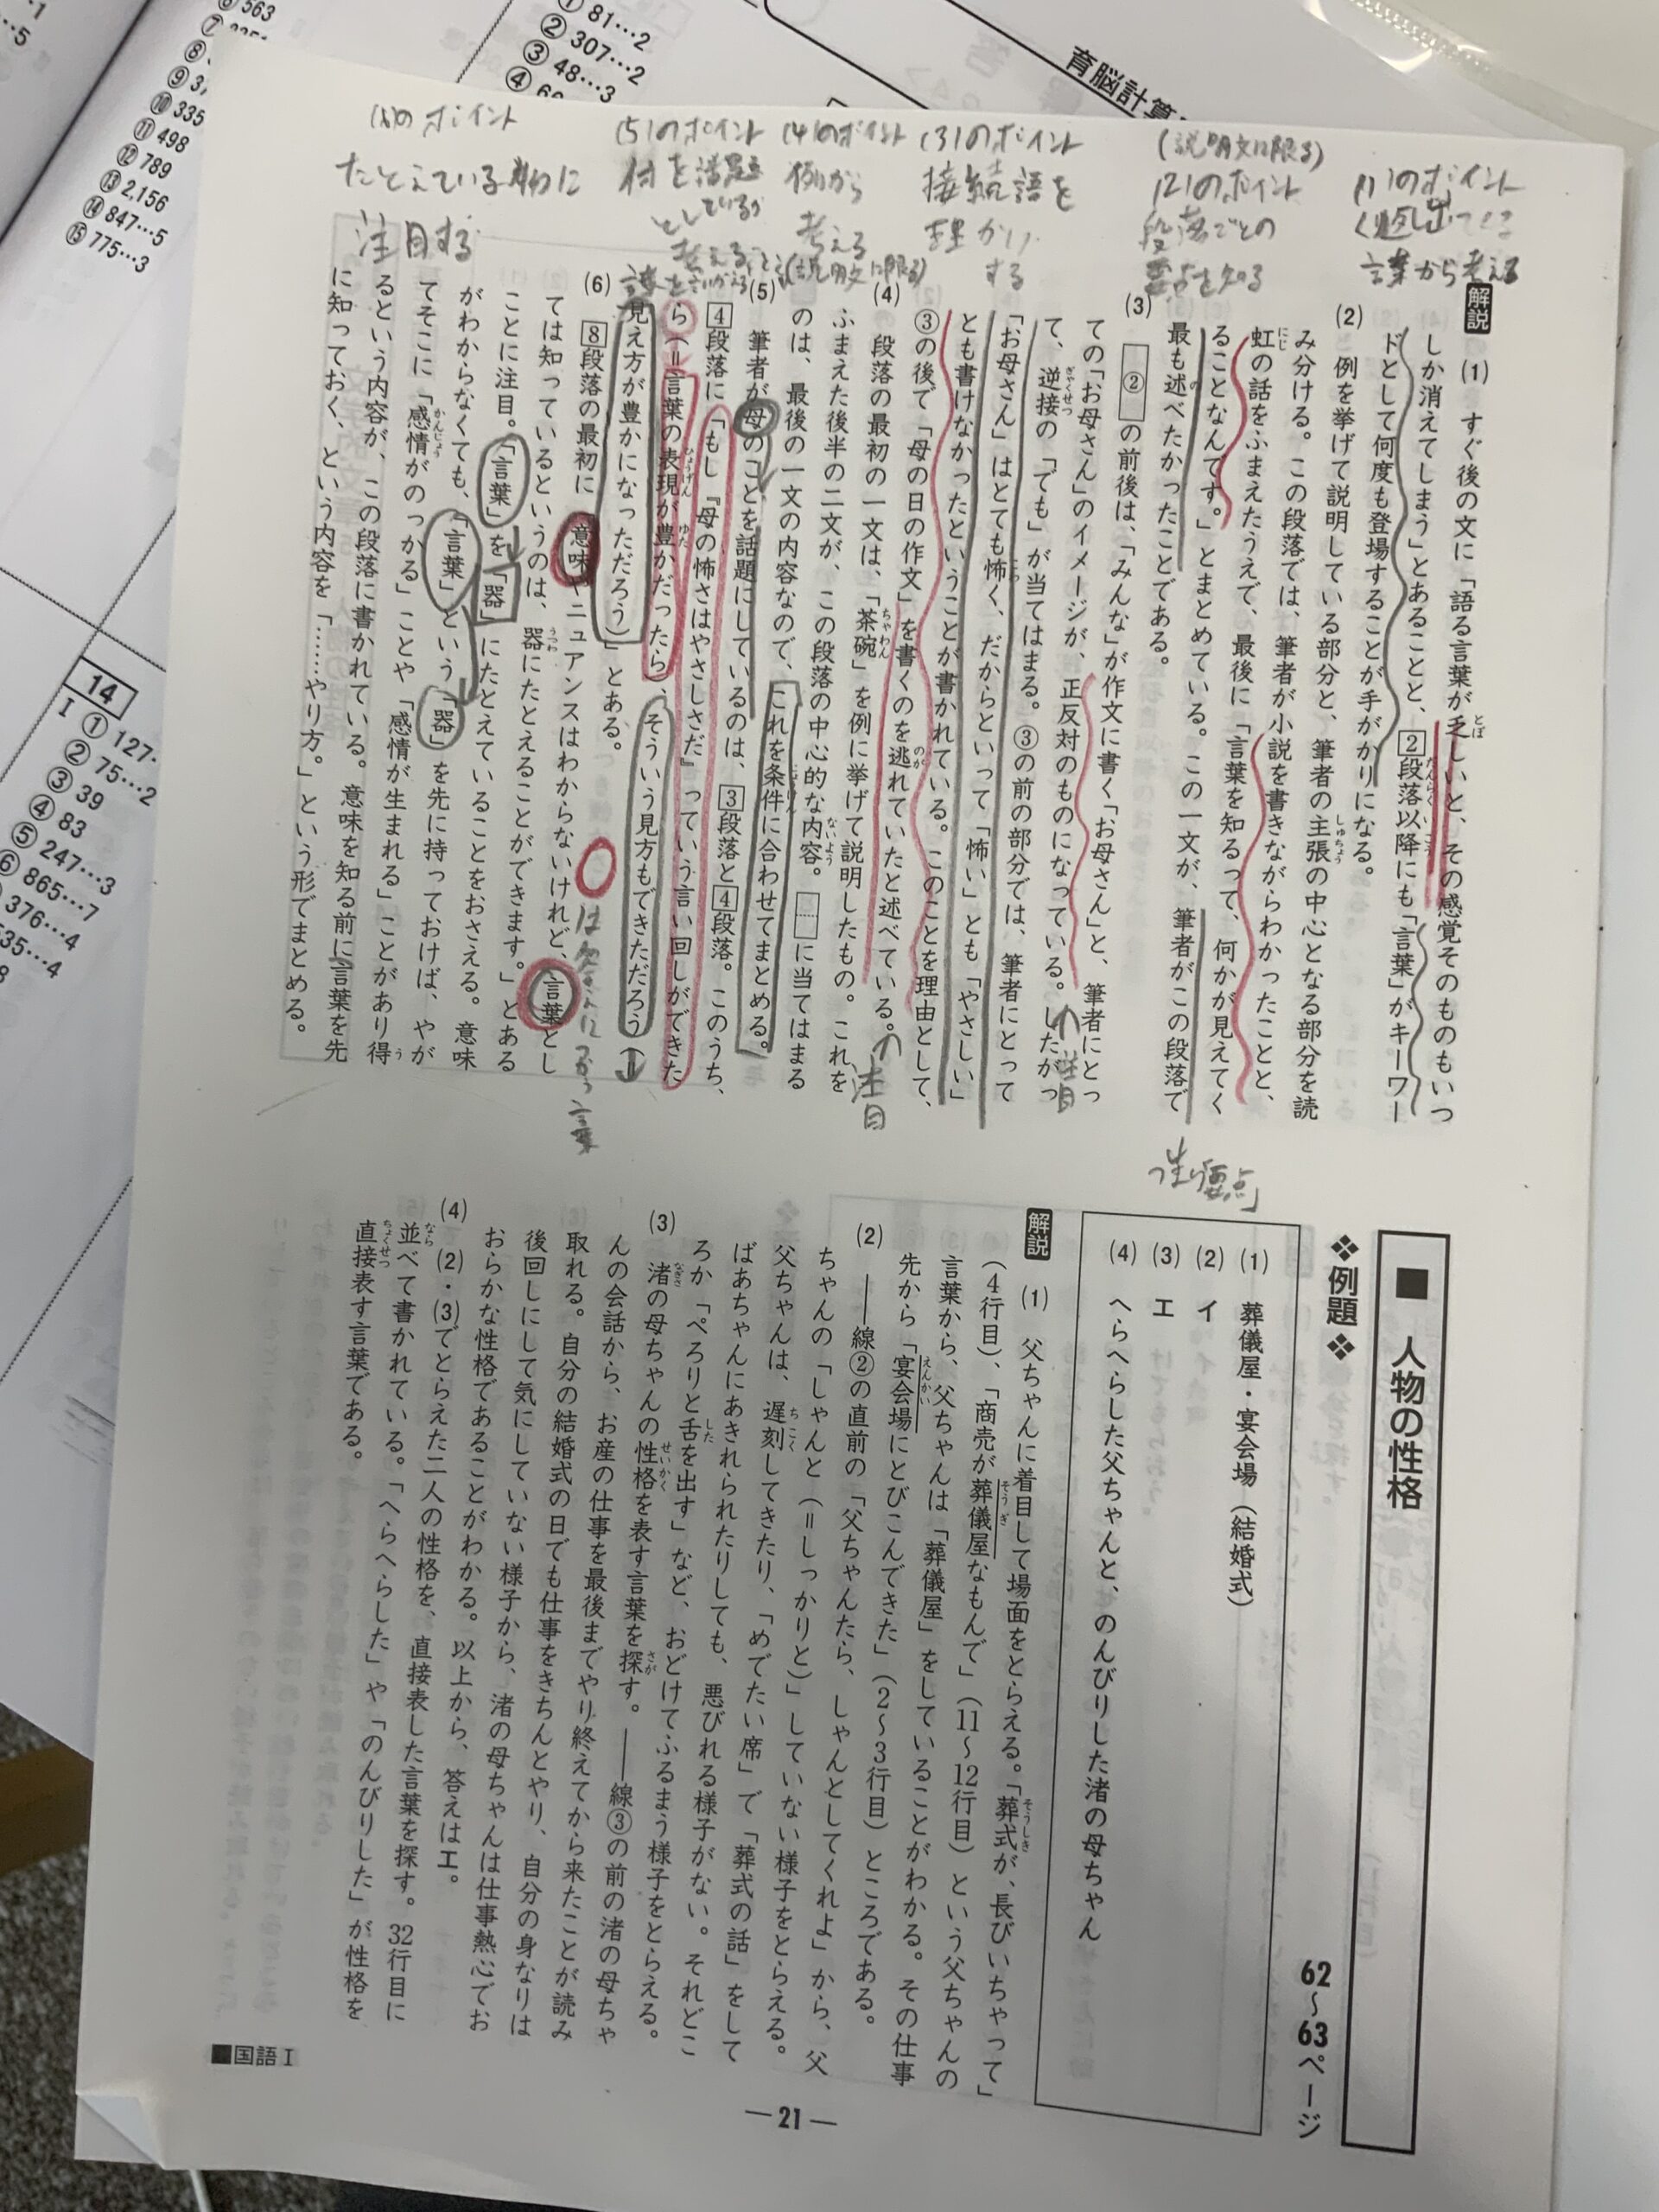 育脳計算
563
335
498
789
2,156
847…5
775…3
81…2
307…2
48…3
14
127
75…2
39
83
247…3
865…7
376…4
535…4
(1)のポイント
くり返し出てくる
言葉から考える
(説明文に限る)
(2)のポイント
段落ごとの
要点を知る
(3)のポイント
接続語を
する
(4)のポイント
例から
考える
(5)のポイント
何を話題
としているか
考える
(6)のポイント
たとえている物に
注目する
解説
(1) すぐ後の文に「語る言葉が乏しいと、その感覚そのものもいつ
しか消えてしまう」とあることと、2段落以降にも「言葉」がキーワー
ドとして何度も登場することが手がかりになる。
(2) 例を挙げて説明している部分と、筆者の主張の中心となる部分を読
み分ける。この段落では、筆者が小説を書きながらわかったことと、
虹の話をふまえたうえで、最後に「言葉を知るって、何かが見えてく
ることなんです。」とまとめている。この一文が、筆者がこの段落で
最も述べたかったことである。
(3) ②の前後は、「みんな」が作文に書く「お母さん」と、筆者にとっ
ての「お母さん」のイメージが、正反対のものになっている。したがっ
て、逆接の「でも」が当てはまる。③の前の部分では、筆者にとって
「お母さん」はとても怖く、だからといって「怖い」とも「やさしい」
とも書けなかったということが書かれている。このことを理由として、
③の後で「母の日の作文」を書くのを逃れていたと述べている。
(4) 段落の最初の一文は、「茶碗」を例に挙げて説明したもの。これを
ふまえた後半の二文が、この段落の中心的な内容。……に当てはまる
のは、最後の一文の内容なので、これを条件に合わせてまとめる。
(5) 筆者が母のことを話題にしているのは、3段落と4段落。このうち、
4段落に「もし『母の怖さはやさしさだ』っていう言い回しができた
ら(=言葉の表現が豊かだったら)、そういう見方もできただろう
見え方が豊かになっただろう)」とある。
(6) 8段落の最初に「意味やニュアンスはわからないけれど、言葉とし
ては知っているというのは、器にたとえることができます。」とある
ことに注目。「言葉」を「器」にたとえていることをおさえる。意味
がわからなくても、「言葉」という「器」を先に持っておけば、やが
てそこに「感情がのっかる」ことや「感情が生まれる」ことがあり得
るという内容が、この段落に書かれている。意味を知る前に言葉を先
に知っておく、という内容を「……やり方。」という形でまとめる。
注目
注目
つまり要点
■ 人物の性格
❖例題❖
62～63ページ
(1) 葬儀屋・宴会場(結婚式)
(2) イ
(3) エ
(4) へらへらした父ちゃんと、のんびりした渚の母ちゃん
解説
(1) 父ちゃんに着目して場面をとらえる。「葬式が、長びいちゃって」
(4行目)、「商売が葬儀屋なもんで」(11～12行目)という父ちゃんの
言葉から、父ちゃんは「葬儀屋」をしていることがわかる。その仕事
先から「宴会場にとびこんできた」(2～3行目)ところである。
(2) ――線②の直前の「父ちゃんたら、しゃんとしてくれよ」から、父
ちゃんの「しゃんと(=しっかりと)」していない様子をとらえる。
父ちゃんは、遅刻してきたり、「めでたい席」で「葬式の話」をして
ばあちゃんにあきれられたりしても、悪びれる様子がない。それどこ
ろか「ぺろりと舌を出す」など、おどけてふるまう様子をとらえる。
(3) 渚の母ちゃんの性格を表す言葉を探す。――線③の前の渚の母ちゃ
んの会話から、お産の仕事を最後までやり終えてから来たことが読み
取れる。自分の結婚式の日でも仕事をきちんとやり、自分の身なりは
後回しにして気にしていない様子から、渚の母ちゃんは仕事熱心でお
おらかな性格であることがわかる。以上から、答えはエ。
(4) (2)・(3)でとらえた二人の性格を、直接表した言葉を探す。32行目に
並べて書かれている。「へらへらした」や「のんびりした」が性格を
直接表す言葉である。
■国語Ⅰ
―21―